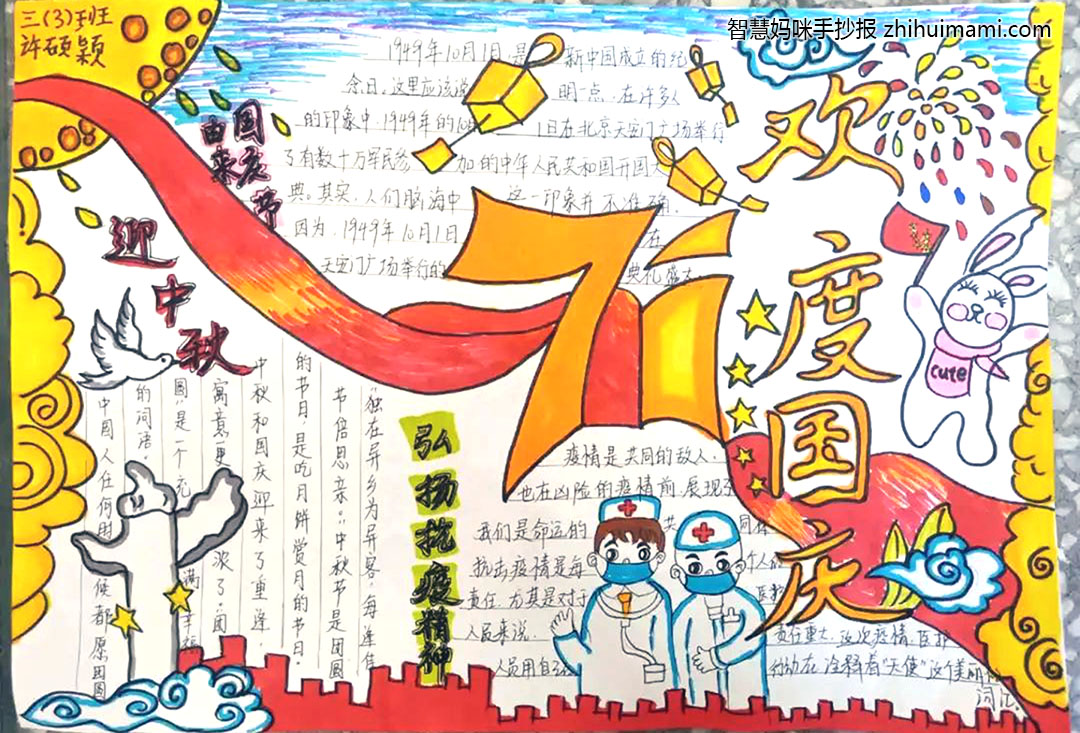 智慧妈咪手抄报 zhihuimami.com
三(3)班
许硕颖
欢度国庆
国庆节
由来
1949年10月1日,是 新中国成立的纪
念日。这里应该说 明一点,在许多人
的印象中,1949年的10 1日在北京天安门广场举行
了有数十万军民参 加的中华人民共和国开国大
典。其实,人们脑海中 这一印象并不准确。
因为,1949年10月1日 在
天安门广场举行的 典礼盛大
71
cute
迎中秋
独在异乡为异客,每逢佳
节倍思亲。"中秋节是团圆
的节日,是吃月饼赏月的节日。
中秋和国庆迎来了重逢,
寓意更 浓了,团
圆"是一个充 满幸福
的词语。
中国人任何时 候都愿团圆
弘扬抗疫精神
疫情是共同的敌人,
也在凶险的疫情前,展现了
我们是命运的 共 同体
抗击疫情是每 个人的
责任,尤其是对于 医护
人员来说,责任重大,这次疫情,医护
人员用自己 行动在诠释着"天使"这个美丽的
词汇。